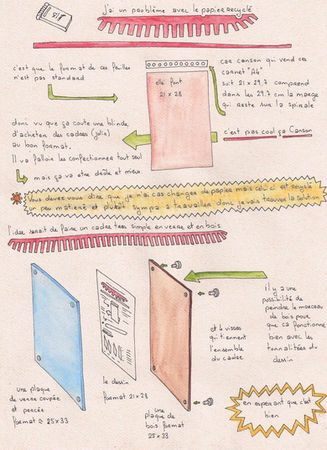 j'ai un problème avec le papier recyclé
c'est que le format de ces feuilles
n'est pas standard
elle font
21 x 28
car canson qui vend ces
carnet "A4"
soit 21 x 29.7 comprend
dans les 29.7 cm la marge
qui reste sur la spirale
c'est pas cool ça Canson
donc vu que ça coute une blinde
d'acheter des cadres (jolie)
au bon format.
Il va falloir les confectionner tout seul
mais ça va etre drole et mieux
Vous devez vous dire, que je n'ai cas changer de papier mais celui ci est
un peu matière et plutôt sympa a travailler donc je vais trouver la solution
l'idée serait de faire un cadre très simple en verre et en bois
Il y a une
possibilité de
peindre le morceau
de bois pour
que ca fonctionne
bien avec les
tonnalitées du
dessin
et 4 visses
qui tiennent
l'ensemble
du cadre
une plaque
de verre coupée
et percée
format 25 x 33
le dessin
format 21 x 28
une
plaque de
bois format
25 x 33
en esperant que c'est
bien